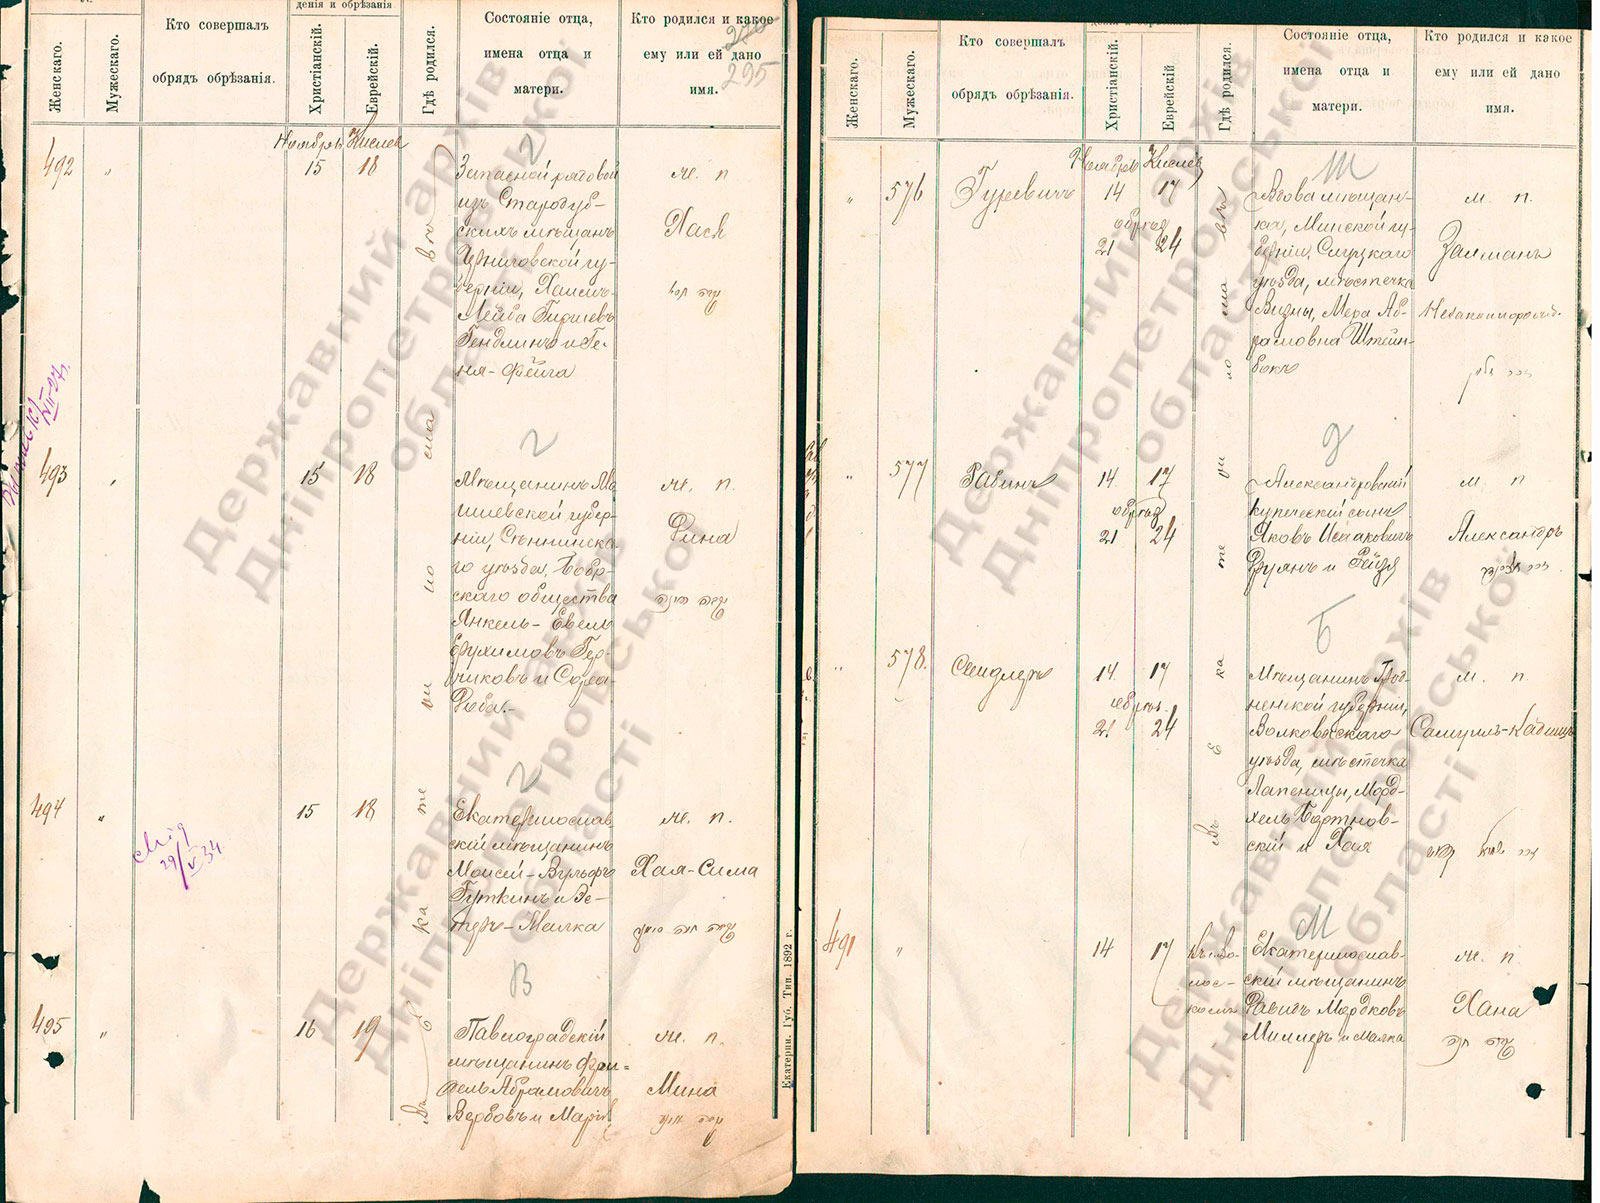 Женскаго.
Мужескаго.
Кто совершалъ
обрядъ обрѣзанія.
денія и обрѣзанія.
Христіанскій.
Еврейскій.
Гдѣ родился.
Состояніе отца,
имена отца и
матери.
Кто родился и какое
ему или ей дано
имя.
295
Ноябрь Кислев
492
"
15
18
Запасной рядовой
изъ Стародуб-
скихъ мѣщанъ
Черниговской гу-
берніи, Хаимъ-
Лейба Гиршевъ
Гендлинъ и Ге-
ня-Фейга
ж. п.
Хася
493
15
18
Мѣщанинъ Мо-
гилевской губер-
ніи, Сѣннинска-
го уѣзда, Бобр-
скаго общества
Янкель-Евель
Ерухимовъ Гер-
чиковъ и Сора-
Роба.-
ж. п.
Рина
494
"
15
18
29/V 34.
Екатеринослав-
скій мѣщанинъ
Моисей-Вульфъ
Гуткинъ и Эс-
теръ-Малка
ж. п.
Хая-Сима
495
"
16
19
Павлоградскій
мѣщанинъ Фри-
дель Абрамовичъ
Вербовъ и Марія
ж. п.
Мина
Екатерин. Губ. Тип. 1892 г.
Женскаго.
Мужескаго.
Кто совершалъ
обрядъ обрѣзанія.
Христіанскій.
Еврейскій
Гдѣ родился.
Состояніе отца,
имена отца и
матери.
Кто родился и какое
ему или ей дано
имя.
Ноябрь Кислев
"
576
Гуревичъ
14
17
обрѣз
21
24
Ш
Вдова мѣщан-
ка, Минской гу-
берніи, Слуцкаго
уѣзда, мѣстечка
Визны, Мера Аб-
рамовна Штейн-
бокъ
м. п.
Залманъ
Незаконнорожд.
"
577
Рабинъ
14
17
обрѣз
21
24
Александровскій
купеческій сынъ
Яковъ Исааковичъ
и Рейзя
м. п
Александръ
"
578.
Сандлеръ
14
17
обрѣз.
21
24
Б
Мѣщанинъ Грод-
ненской губерніи,
Волковскаго
уѣзда, мѣстечка
Лапеницы, Морд-
хель Бортнов-
скій и Хая
м. п.
Самуилъ-Кадишъ
491
"
14
17
М
Екатеринослав-
скій мѣщанинъ
Давидъ Мордковъ
Миллеръ и Малка
ж. п.
Хана
Въ Екатеринославѣ
Державний архів
Дніпропетровської
області